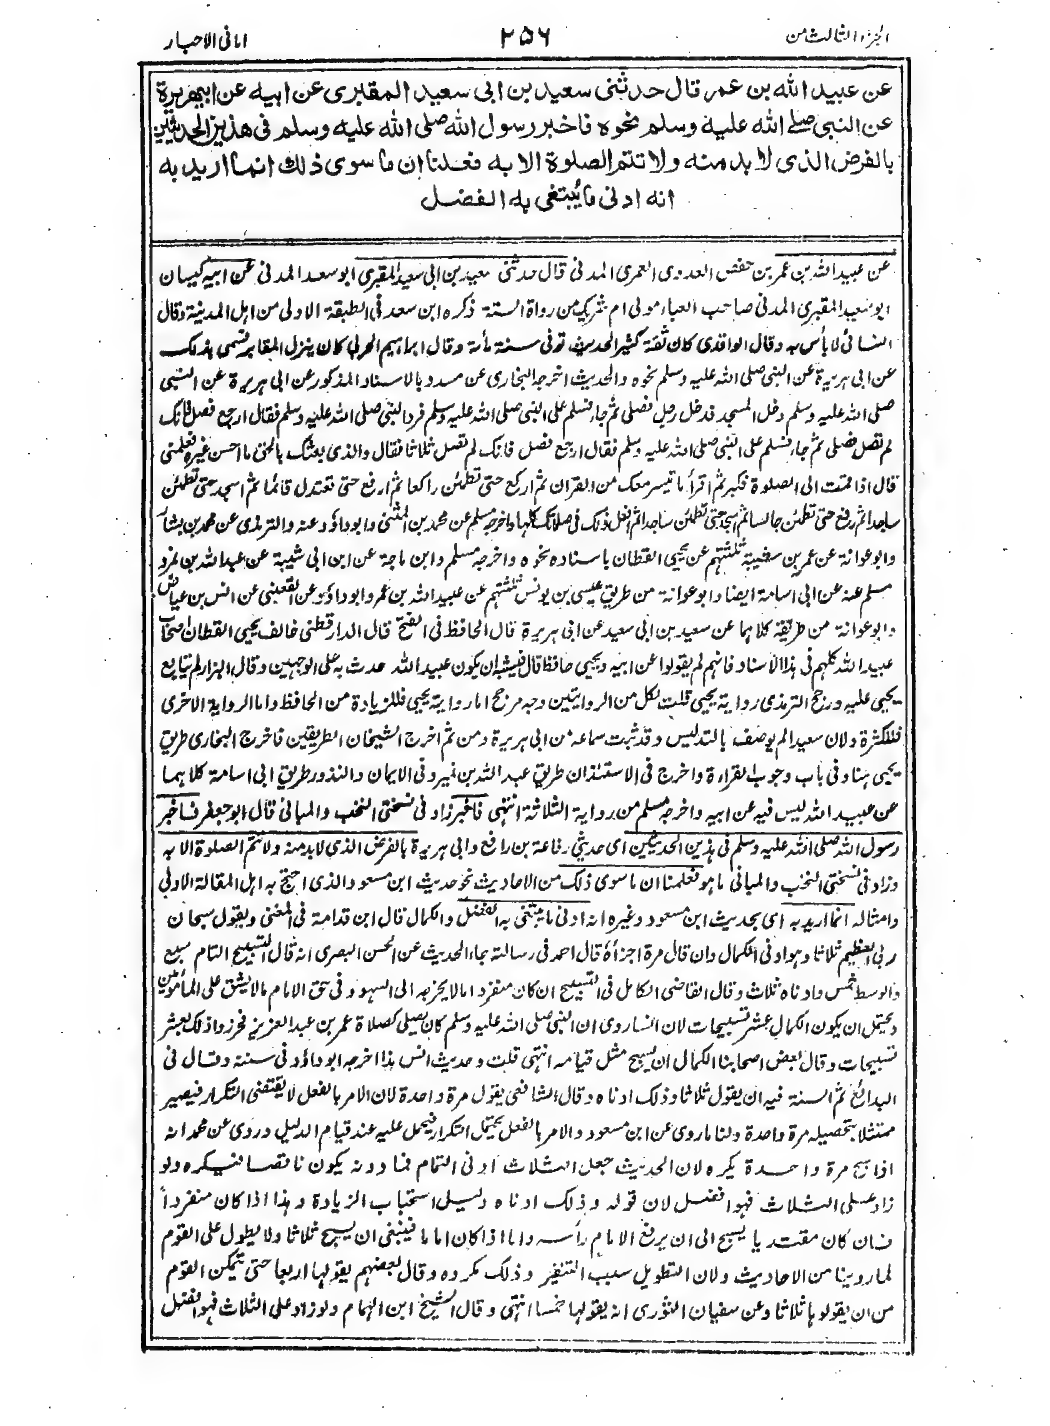 الجزء الثالث من
٢٥٦
امانى الاحبار
عن عبيد الله بن عمر قال حدثنى سعيد بن ابى سعيد المقبرى عن ابيه عن ابى هريرة
عن النبى صلى الله عليه وسلم نحوه فاخبر رسول الله صلى الله عليه وسلم فى هذين الحديثين
بالفرض الذى لا بد منه ولا تتم الصلوة الا به فعلمنا ان ما سوى ذلك انما اريد به
انه ادنى ما يُبتغى به الفضل
عن عبيد الله بن عمر بن حفص العدوى العمرى المدنى قال حدثنى سعيد بن ابى سعيد المقبرى ابو سعد المدنى عن ابيه كيسان
ابو سعيد المقبرى المدنى صاحب العباء مولى ام شريك من رواة الستة ذكره ابن سعد فى الطبقة الاولى من اهل المدينة وقال
النسائى لا بأس به وقال الواقدى كان ثقة كثير الحديث توفى سنة مأة وقال ابراهيم الحربى كان ينزل المقابر فسمى بذلك
عن ابى هريرة عن النبى صلى الله عليه وسلم نحوه والحديث اخرجه البخارى عن مسدد بالاسناد المذكور عن ابى هريرة عن النبى
صلى الله عليه وسلم دخل المسجد فدخل رجل فصلى ثم جاء فسلم على النبى صلى الله عليه وسلم فرد النبى صلى الله عليه وسلم فقال ارجع فصل فانك
لم تصل فصلى ثم جاء فسلم على النبى صلى الله عليه وسلم فقال ارجع فصل فانك لم تصل ثلاثا فقال والذى بعثك بالحق ما احسن غيره فعلمنى
قال اذا قمت الى الصلوة فكبر ثم اقرأ ما تيسر معك من القران ثم اركع حتى تطمئن راكعا ثم ارفع حتى تعتدل قائما ثم اسجد حتى تطمئن
ساجدا ثم ارفع حتى تطمئن جالسا ثم اسجد حتى تطمئن ساجدا ثم افعل ذلك فى صلاتك كلها واخرجه مسلم عن محمد بن المثنى وابو داؤد عنه والترمذى عن محمد بن بشار
وابو عوانة عن عمر بن شيبة ثلثتهم عن يحيى القطان باسناده نحوه واخرجه مسلم وابن ماجة عن ابن ابى شيبة عن عبد الله بن نمير و
مسلم عنه عن ابى اسامة ايضا وابو عوانة من طريق عيسى بن يونس ثلثتهم عن عبيد الله بن عمر وابو داؤد عن القعنبى عن انس بن عياض
وابو عوانة من طريقه كلاهما عن سعيد بن ابى سعيد عن ابى هريرة قال الحافظ فى الفتح قال الدارقطنى خالف يحيى القطان اصحاب
عبيد الله كلهم فى هذا الاسناد فانهم لم يقولوا عن ابيه ويحيى حافظ قال فيشبه ان يكون عبيد الله حدث به على الوجهين وقال البزار لم يتابع
يحيى عليه ورجح الترمذى رواية يحيى قلت لكل من الروايتين وجه مرجح اما رواية يحيى فللزيادة من الحافظ واما الرواية الاخرى
فللكثرة ولان سعيدا لم يوصف بالتدليس وقد ثبت سماعه من ابى هريرة ومن ثم اخرج الشيخان الطريقين فاخرج البخارى طريق
يحيى هنا وفى باب وجوب القراءة واخرج فى الاستئذان طريق عبد الله بن نمير وفى الايمان والنذور طريق ابى اسامة كلاهما
عن عبيد الله ليس فيه عن ابيه واخرجه مسلم من رواية الثلاثة انتهى فاخبر زاد فى نسختى النخب والمبانى قال ابو جعفر فاخبر
رسول الله صلى الله عليه وسلم فى هذين الحديثين اى حديثى رفاعة بن رافع وابى هريرة بالفرض الذى لا بد منه ولا تتم الصلوة الا به
وزاد فى نسختى النخب والمبانى ما هو فعلمنا ان ما سوى ذلك من الاحاديث نحو حديث ابن مسعود والذى احتج به اهل المقالة الاولى
وامثاله انما اريد به اى بحديث ابن مسعود وغيره انه ادنى ما يبتغى به الفضل والكمال قال ابن قدامة فى المغنى ويقول سبحان
ربى العظيم ثلاثا وهو ادنى الكمال وان قال مرة اجزأه قال احمد فى رسالته جاء الحديث عن الحسن البصرى انه قال التسبيح التام سبع
والوسط خمس وادناه ثلاث وقال القاضى الكامل فى التسبيح ان كان منفردا ما لا يخرجه الى السهو وفى حق الامام ما لا يشق على المأمومين
ويحتمل ان يكون الكمال عشر تسبيحات لان انسا روى ان النبى صلى الله عليه وسلم كان يصلى كصلاة عمر بن عبد العزيز فحزروا ذلك بعشر
تسبيحات وقال بعض اصحابنا الكمال ان يسبح مثل قيامه انتهى قلت وحديث انس هذا اخرجه ابو داؤد فى سننه وقال فى
البدائع ثم السنة فيه ان يقول ثلاثا وذلك ادناه وقال الشافعى يقول مرة واحدة لان الامر بالفعل لا يقتضى التكرار فيصير
ممتثلا بتحصيله مرة واحدة ولنا ما روى عن ابن مسعود والامر بالفعل يحتمل التكرار فيحمل عليه عند قيام الدليل وروى عن محمد انه
اذا سبح مرة واحدة يكره لان الحديث جعل الثلاث ادنى التمام فما دونه يكون ناقصا فيكره ولو
زاد على الثلاث فهو افضل لان قوله وذلك ادناه دليل استحباب الزيادة وهذا اذا كان منفرداً
فان كان مقتديا يسبح الى ان يرفع الامام رأسه واما اذا كان اماما فينبغى ان يسبح ثلاثا ولا يطول على القوم
لما روينا من الاحاديث ولان التطويل سبب التنفير وذلك مكروه وقال بعضهم يقولها اربعا حتى يتمكن القوم
من ان يقولوها ثلاثا وعن سفيان الثورى انه يقولها خمسا انتهى وقال الشيخ ابن الهمام ولو زاد على الثلاث فهو افضل